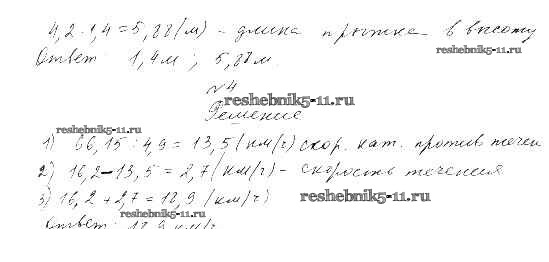 4,2 · 1,4 = 5,88 (м) - длина прыжка в высоту
reshebnik5-11.ru
Ответ: 1,4 м ; 5,88 м.
№4
reshebnik5-11.ru
Решение
reshebnik5-11.ru
1) 66,15 : 4,9 = 13,5 (км/ч) скор. кат. против течен
2) 16,2 - 13,5 = 2,7 (км/ч) - скорость течения
3) 16,2 + 2,7 = 18,9 (км/ч)
reshebnik5-11.ru
reshebnik5-11.ru
Ответ: 18,9 км/ч